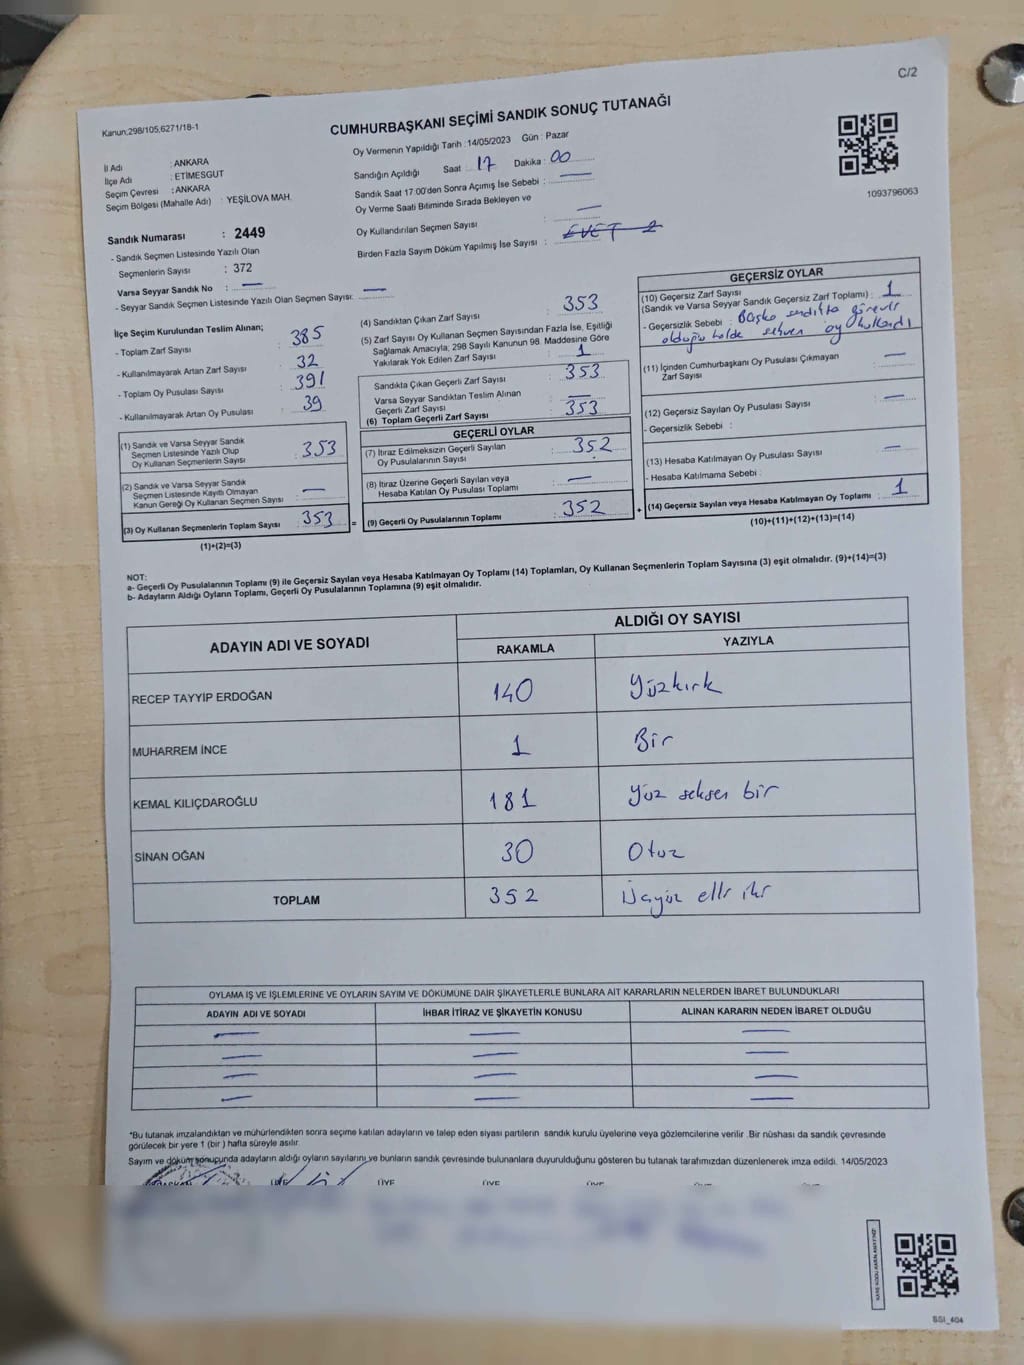 C/2
Kanun;298/105,6271/18-1
CUMHURBAŞKANI SEÇİMİ SANDIK SONUÇ TUTANAĞI
Oy Vermenin Yapıldığı Tarih : 14/05/2023 Gün : Pazar
İl Adı : ANKARA
İlçe Adı : ETİMESGUT
Seçim Çevresi : ANKARA
Seçim Bölgesi (Mahalle Adı) : YEŞİLOVA MAH.
Sandığın Açıldığı Saat : 17 Dakika : 00
Sandık Saat 17:00'den Sonra Açımış İse Sebebi : —
Oy Verme Saati Bitiminde Sırada Bekleyen ve
Oy Kullandırılan Seçmen Sayısı : —
Birden Fazla Sayım Döküm Yapılmış İse Sayısı : EVET 2
1093796063
Sandık Numarası : 2449
- Sandık Seçmen Listesinde Yazılı Olan
Seçmenlerin Sayısı : 372
Varsa Seyyar Sandık No : —
- Seyyar Sandık Seçmen Listesinde Yazılı Olan Seçmen Sayısı: —
İlçe Seçim Kurulundan Teslim Alınan;
- Toplam Zarf Sayısı : 385
- Kullanılmayarak Artan Zarf Sayısı : 32
- Toplam Oy Pusulası Sayısı : 391
- Kullanılmayarak Artan Oy Pusulası : 39
(1) Sandık ve Varsa Seyyar Sandık
Seçmen Listesinde Yazılı Olup
Oy Kullanan Seçmenlerin Sayısı : 353
(2) Sandık ve Varsa Seyyar Sandık
Seçmen Listesinde Kayıtlı Olmayan
Kanun Gereği Oy Kullanan Seçmen Sayısı : —
(3) Oy Kullanan Seçmenlerin Toplam Sayısı : 353
(1)+(2)=(3)
(4) Sandıktan Çıkan Zarf Sayısı : 353
(5) Zarf Sayısı Oy Kullanan Seçmen Sayısından Fazla İse, Eşitliği
Sağlamak Amacıyla; 298 Sayılı Kanunun 98. Maddesine Göre
Yakılarak Yok Edilen Zarf Sayısı : 1
Sandıkta Çıkan Geçerli Zarf Sayısı : 353
Varsa Seyyar Sandıktan Teslim Alınan
Geçerli Zarf Sayısı : —
(6) Toplam Geçerli Zarf Sayısı : 353
GEÇERLİ OYLAR
(7) İtiraz Edilmeksizin Geçerli Sayılan
Oy Pusulalarının Sayısı : 352
(8) İtiraz Üzerine Geçerli Sayılan veya
Hesaba Katılan Oy Pusulası Toplamı : —
= (9) Geçerli Oy Pusulalarının Toplamı : 352
GEÇERSİZ OYLAR
(10) Geçersiz Zarf Sayısı
(Sandık ve Varsa Seyyar Sandık Geçersiz Zarf Toplamı) : 1
- Geçersizlik Sebebi : Başka sandıkta görevli
olduğu halde sehven oy kullandı
(11) İçinden Cumhurbaşkanı Oy Pusulası Çıkmayan
Zarf Sayısı : —
(12) Geçersiz Sayılan Oy Pusulası Sayısı : —
- Geçersizlik Sebebi :
(13) Hesaba Katılmayan Oy Pusulası Sayısı : —
- Hesaba Katılmama Sebebi :
+ (14) Geçersiz Sayılan veya Hesaba Katılmayan Oy Toplamı : 1
(10)+(11)+(12)+(13)=(14)
NOT:
a- Geçerli Oy Pusulalarının Toplamı (9) ile Geçersiz Sayılan veya Hesaba Katılmayan Oy Toplamı (14) Toplamları, Oy Kullanan Seçmenlerin Toplam Sayısına (3) eşit olmalıdır. (9)+(14)=(3)
b- Adayların Aldığı Oyların Toplamı, Geçerli Oy Pusulalarının Toplamına (9) eşit olmalıdır.
ADAYIN ADI VE SOYADI
ALDIĞI OY SAYISI
RAKAMLA YAZIYLA
RECEP TAYYİP ERDOĞAN 140 Yüzkırk
MUHARREM İNCE 1 Bir
KEMAL KILIÇDAROĞLU 181 Yüz seksen bir
SİNAN OĞAN 30 Otuz
TOPLAM 352 Üçyüz elli iki
OYLAMA İŞ VE İŞLEMLERİNE VE OYLARIN SAYIM VE DÖKÜMÜNE DAİR ŞİKAYETLERLE BUNLARA AİT KARARLARIN NELERDEN İBARET BULUNDUKLARI
ADAYIN ADI VE SOYADI İHBAR İTİRAZ VE ŞİKAYETİN KONUSU ALINAN KARARIN NEDEN İBARET OLDUĞU
— — —
— — —
— — —
— — —
*Bu tutanak imzalandıktan ve mühürlendikten sonra seçime katılan adayların ve talep eden siyasi partilerin sandık kurulu üyelerine veya gözlemcilerine verilir .Bir nüshası da sandık çevresinde
görülecek bir yere 1 (bir ) hafta süreyle asılır.
Sayım ve döküm sonucunda adayların aldığı oyların sayılarını ve bunların sandık çevresinde bulunanlara duyurulduğunu gösteren bu tutanak tarafımızdan düzenlenerek imza edildi. 14/05/2023
ÜYE ÜYE ÜYE ÜYE
SSI_404